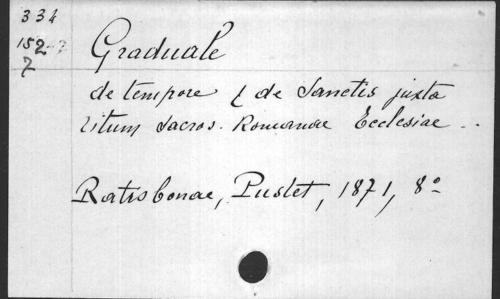 334
152-7
7
Graduale
de tempore & de Sanctis juxta
ritum sacros. Romanae Ecclesiae ..
Ratisbonae, Pustet, 1871, 8°